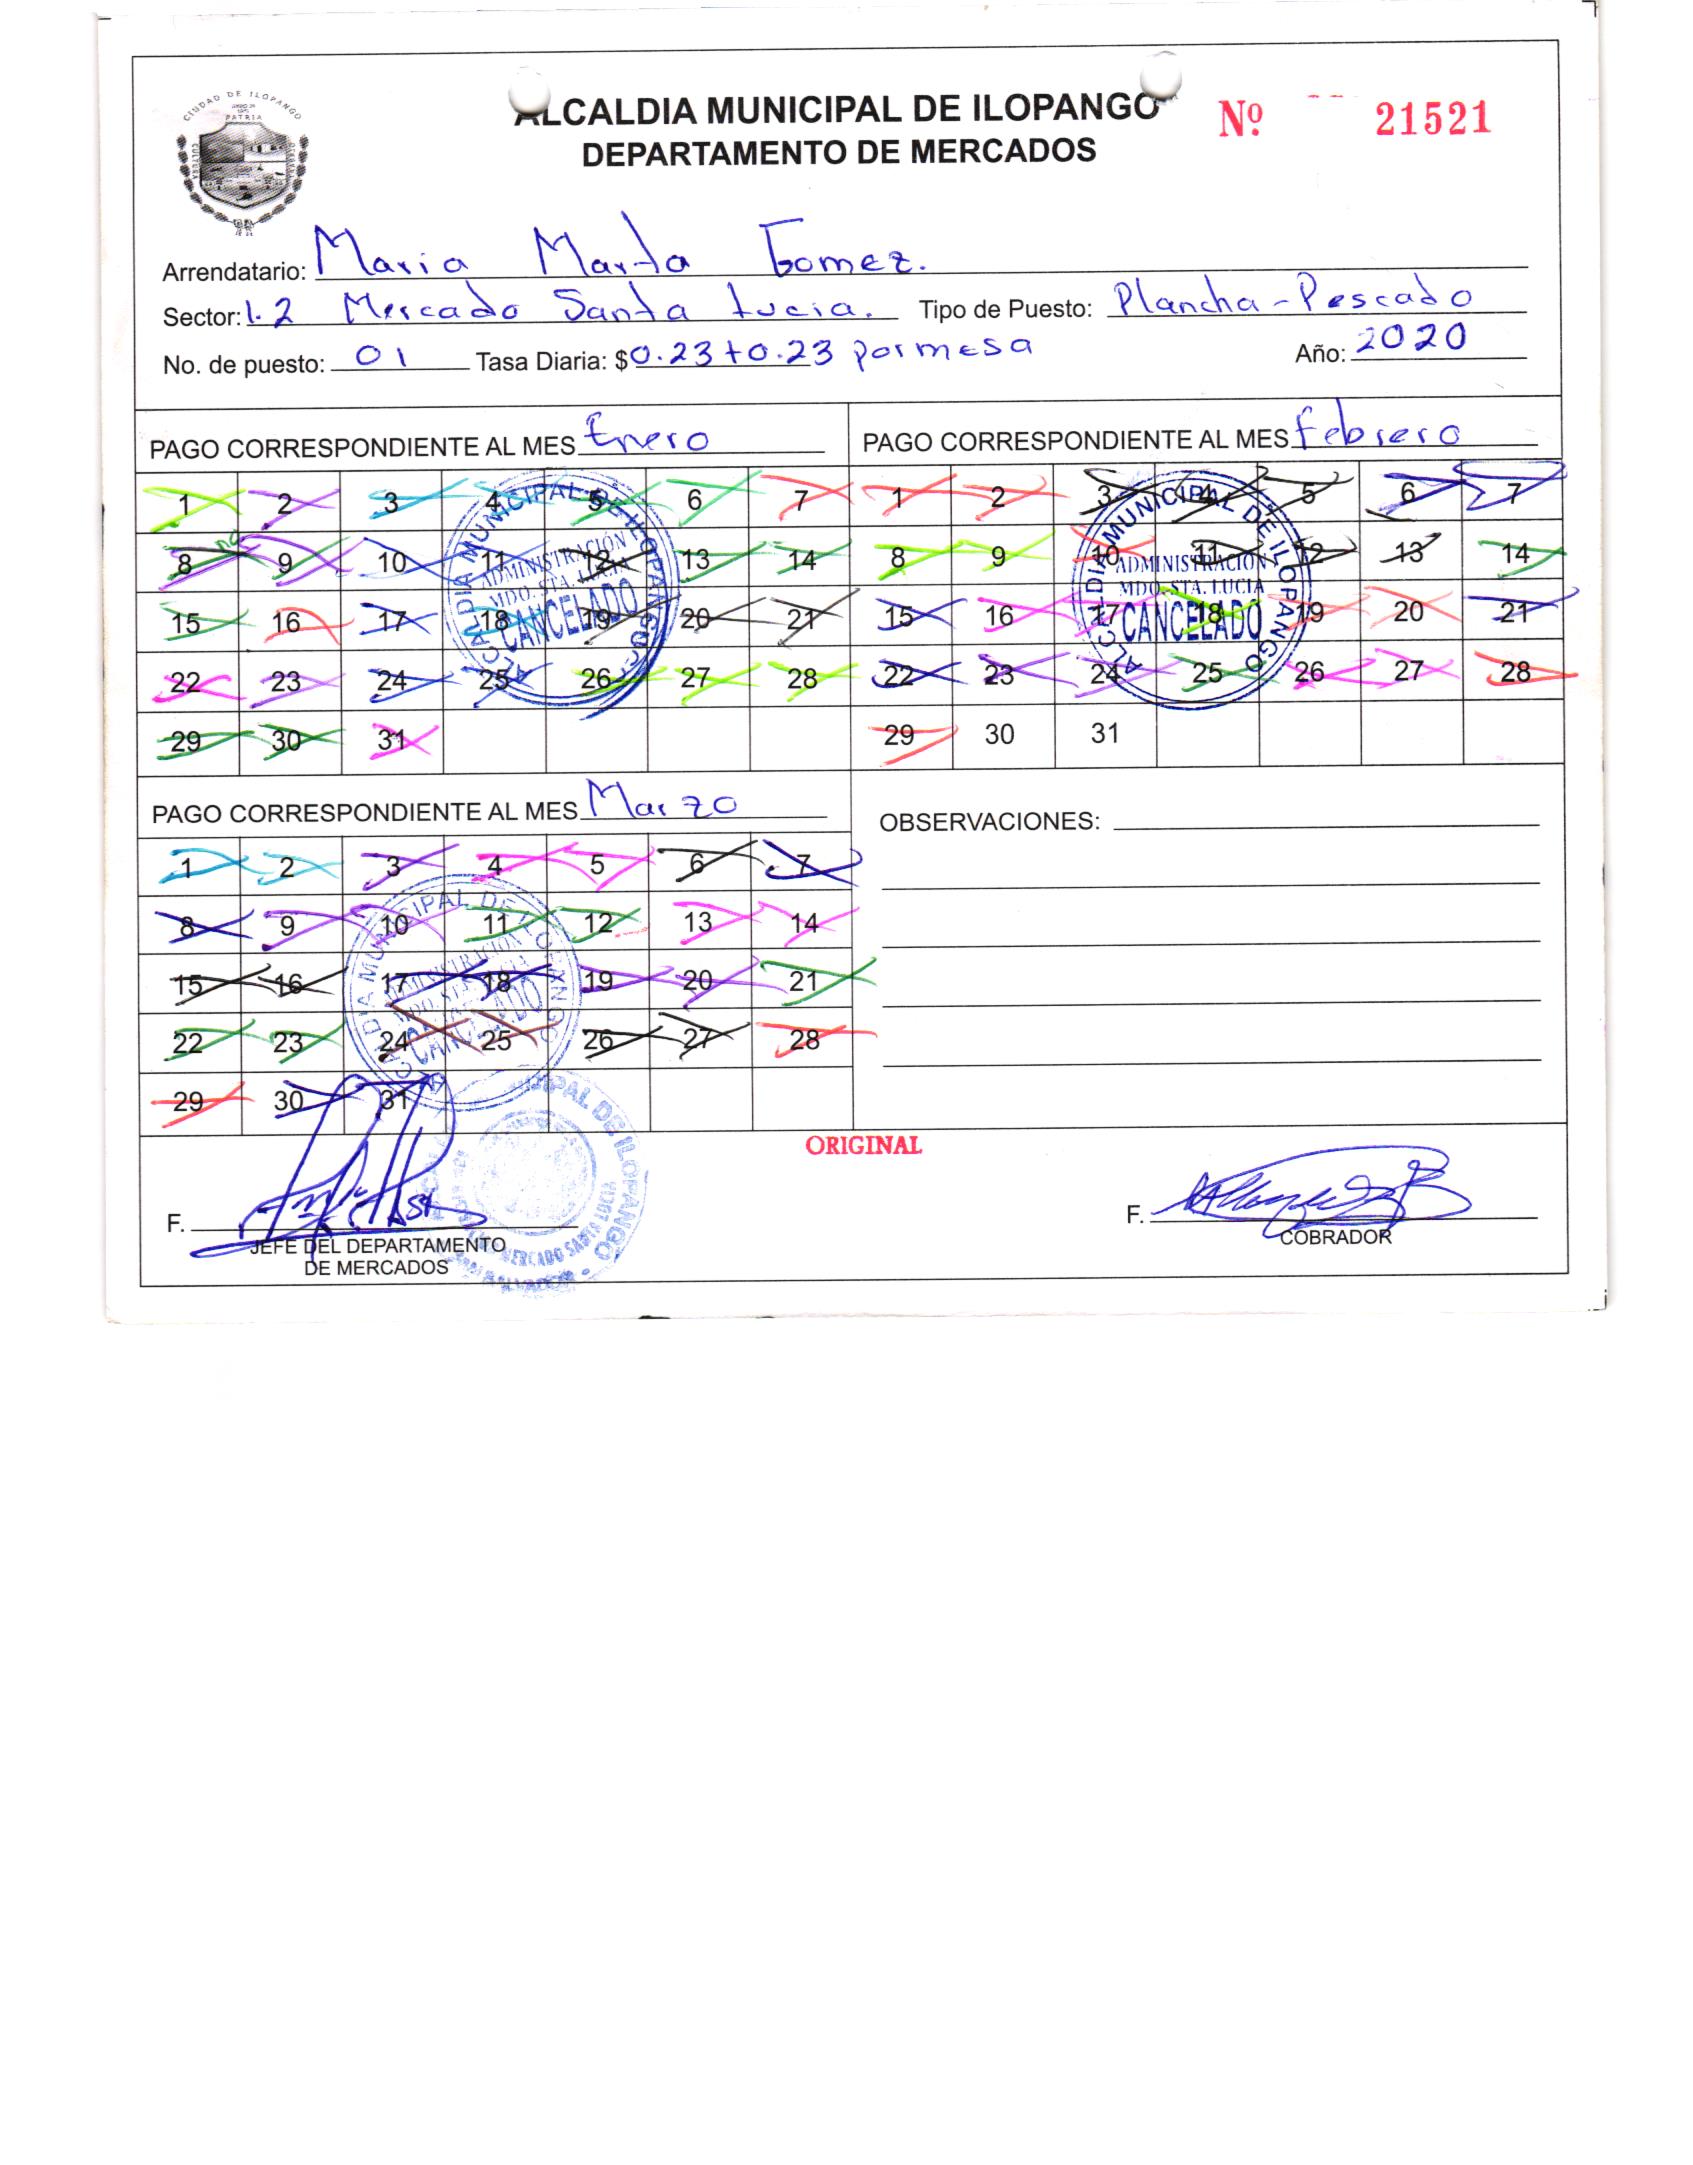 CIUDAD DE ILOPANGO
PATRIA
CULTURA
ALCALDIA MUNICIPAL DE ILOPANGO
Nº 21521
DEPARTAMENTO DE MERCADOS
Arrendatario: Maria Marta Gomez.
Sector: 1.2 Mercado Santa Lucia. Tipo de Puesto: Plancha-Pescado
No. de puesto: 01 Tasa Diaria: $0.23+0.23 por mesa Año: 2020
PAGO CORRESPONDIENTE AL MES Enero
1 2 3 4 5 6 7
8 9 10 11 12 13 14
15 16 17 18 19 20 21
22 23 24 25 26 27 28
29 30 31
ALCALDIA MUNICIPAL DE ILOPANGO
ADMINISTRACIÓN
MDO. STA. LUCIA
CANCELADO
PAGO CORRESPONDIENTE AL MES Febrero
1 2 3 4 5 6 7
8 9 10 11 12 13 14
15 16 17 18 19 20 21
22 23 24 25 26 27 28
29 30 31
ALCALDIA MUNICIPAL DE ILOPANGO
ADMINISTRACIÓN
MDO. STA. LUCIA
CANCELADO
PAGO CORRESPONDIENTE AL MES Marzo
1 2 3 4 5 6 7
8 9 10 11 12 13 14
15 16 17 18 19 20 21
22 23 24 25 26 27 28
29 30 31
ALCALDIA MUNICIPAL DE ILOPANGO
ADMINISTRACIÓN
MDO. STA. LUCIA
CANCELADO
OBSERVACIONES:
ORIGINAL
F.
JEFE DEL DEPARTAMENTO
DE MERCADOS
MUNICIPAL DE ILOPANGO
MERCADO SANTA LUCIA
F.
COBRADOR